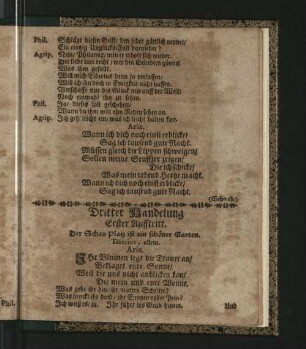 Phil. Schlägt diesen Geist, den jeder göttlich nennt,
Ein einzig Unglücks-Fall darnieder?
Agrip. Nein, Philante, mein er erholt sich wieder.
Der liebe nur nicht zwey den Grieben
Was ihm gefällt.
Will mich Tiberius denn ja verlassen/
Will ich ihn doch in Ewigkeit nicht hassen.
Verschaffe nur die Gluck mir auff der Welt/
Noch einmahl ihn zu sehen.
Phil. Ja, dieses soll geschehen/
Wann du ihm wilt von Reden sehen an.
Agrip. Ich geh/ leicht um/ was ich leicht halten kan.
Aria.
Wann ich dich noch einst erblicke/
Sag ich tausend gute Nacht.
Müssen gleich die Lippen schweigen/
Sollen meine Seuffzer zeigen/
Die ich schicke/
Was mein liebend Hertze macht.
Wann ich dich noch einst erblicke/
Sag ich tausend gute Nacht.
(Gehet ab.)
Dritter Handelung
Erster Aufftritt.
Der Schau Platz ist ein schöner Garten.
Tiberius, allein.
Aria.
IHr Blumen legt die Trauer an/
Beklaget eure Sonne/
Weil die uns nicht anblicken kan/
Die mein und eure Wonne.
Was geht ihr hin, ihr matten Schritte?
Was denckt ihr doch/ ihr Sinnen voller Pein?
Ich weiß es ja, Ihr führt ins Grab hinein.
Und
Phil.